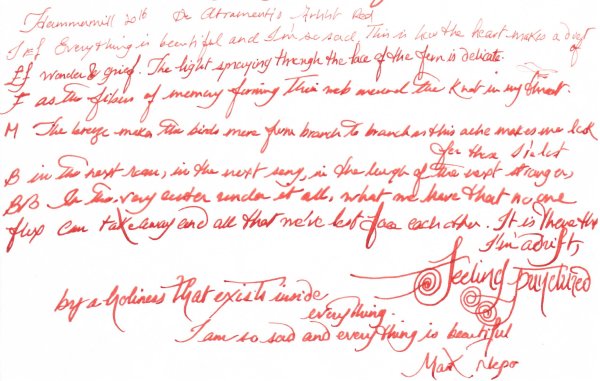 Hammermill 20lb De Atramentis Artist Red
Everything is beautiful and I'm so sad. This is how the heart makes a duet of
EF wonder & grief. The light spraying through the lace of the fern is delicate
F as the fibers of memory forming their web around the knot in my throat.
M The breeze makes the birds move from branch to branch as this ache makes me look
for those I've lost
B in the next room, in the next song, in the laugh of the next stranger.
BB In the very center under it all, what we have that no one
flex can take away and all that we've lost face each other. It is there that
I'm adrift,
feeling punctured
by a holiness that exists inside
everything.
I am so sad and everything is beautiful
Mark Nepo